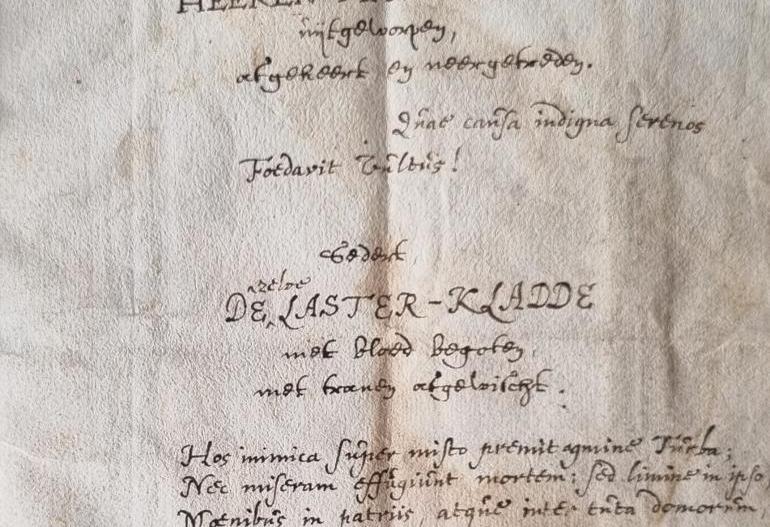 HEEREN
uijtgeworpen,
afgekeert en neergetreden.
Quae causa indigna serenos
Foedavit Vultus!
Gedert,
zelve
DE LASTER-KLADDE
met bloed begoten,
met tranen afgewischt.
Hos inimica super misto premit agmine Turba;
Nec miseram effugiunt mortem; sed limine in ipso,
Moenibus in patriis, atque inter tuta domorum,